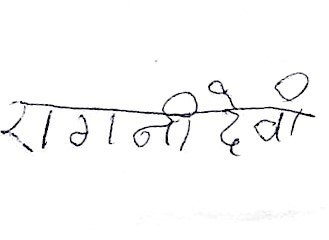 रागनी देवी